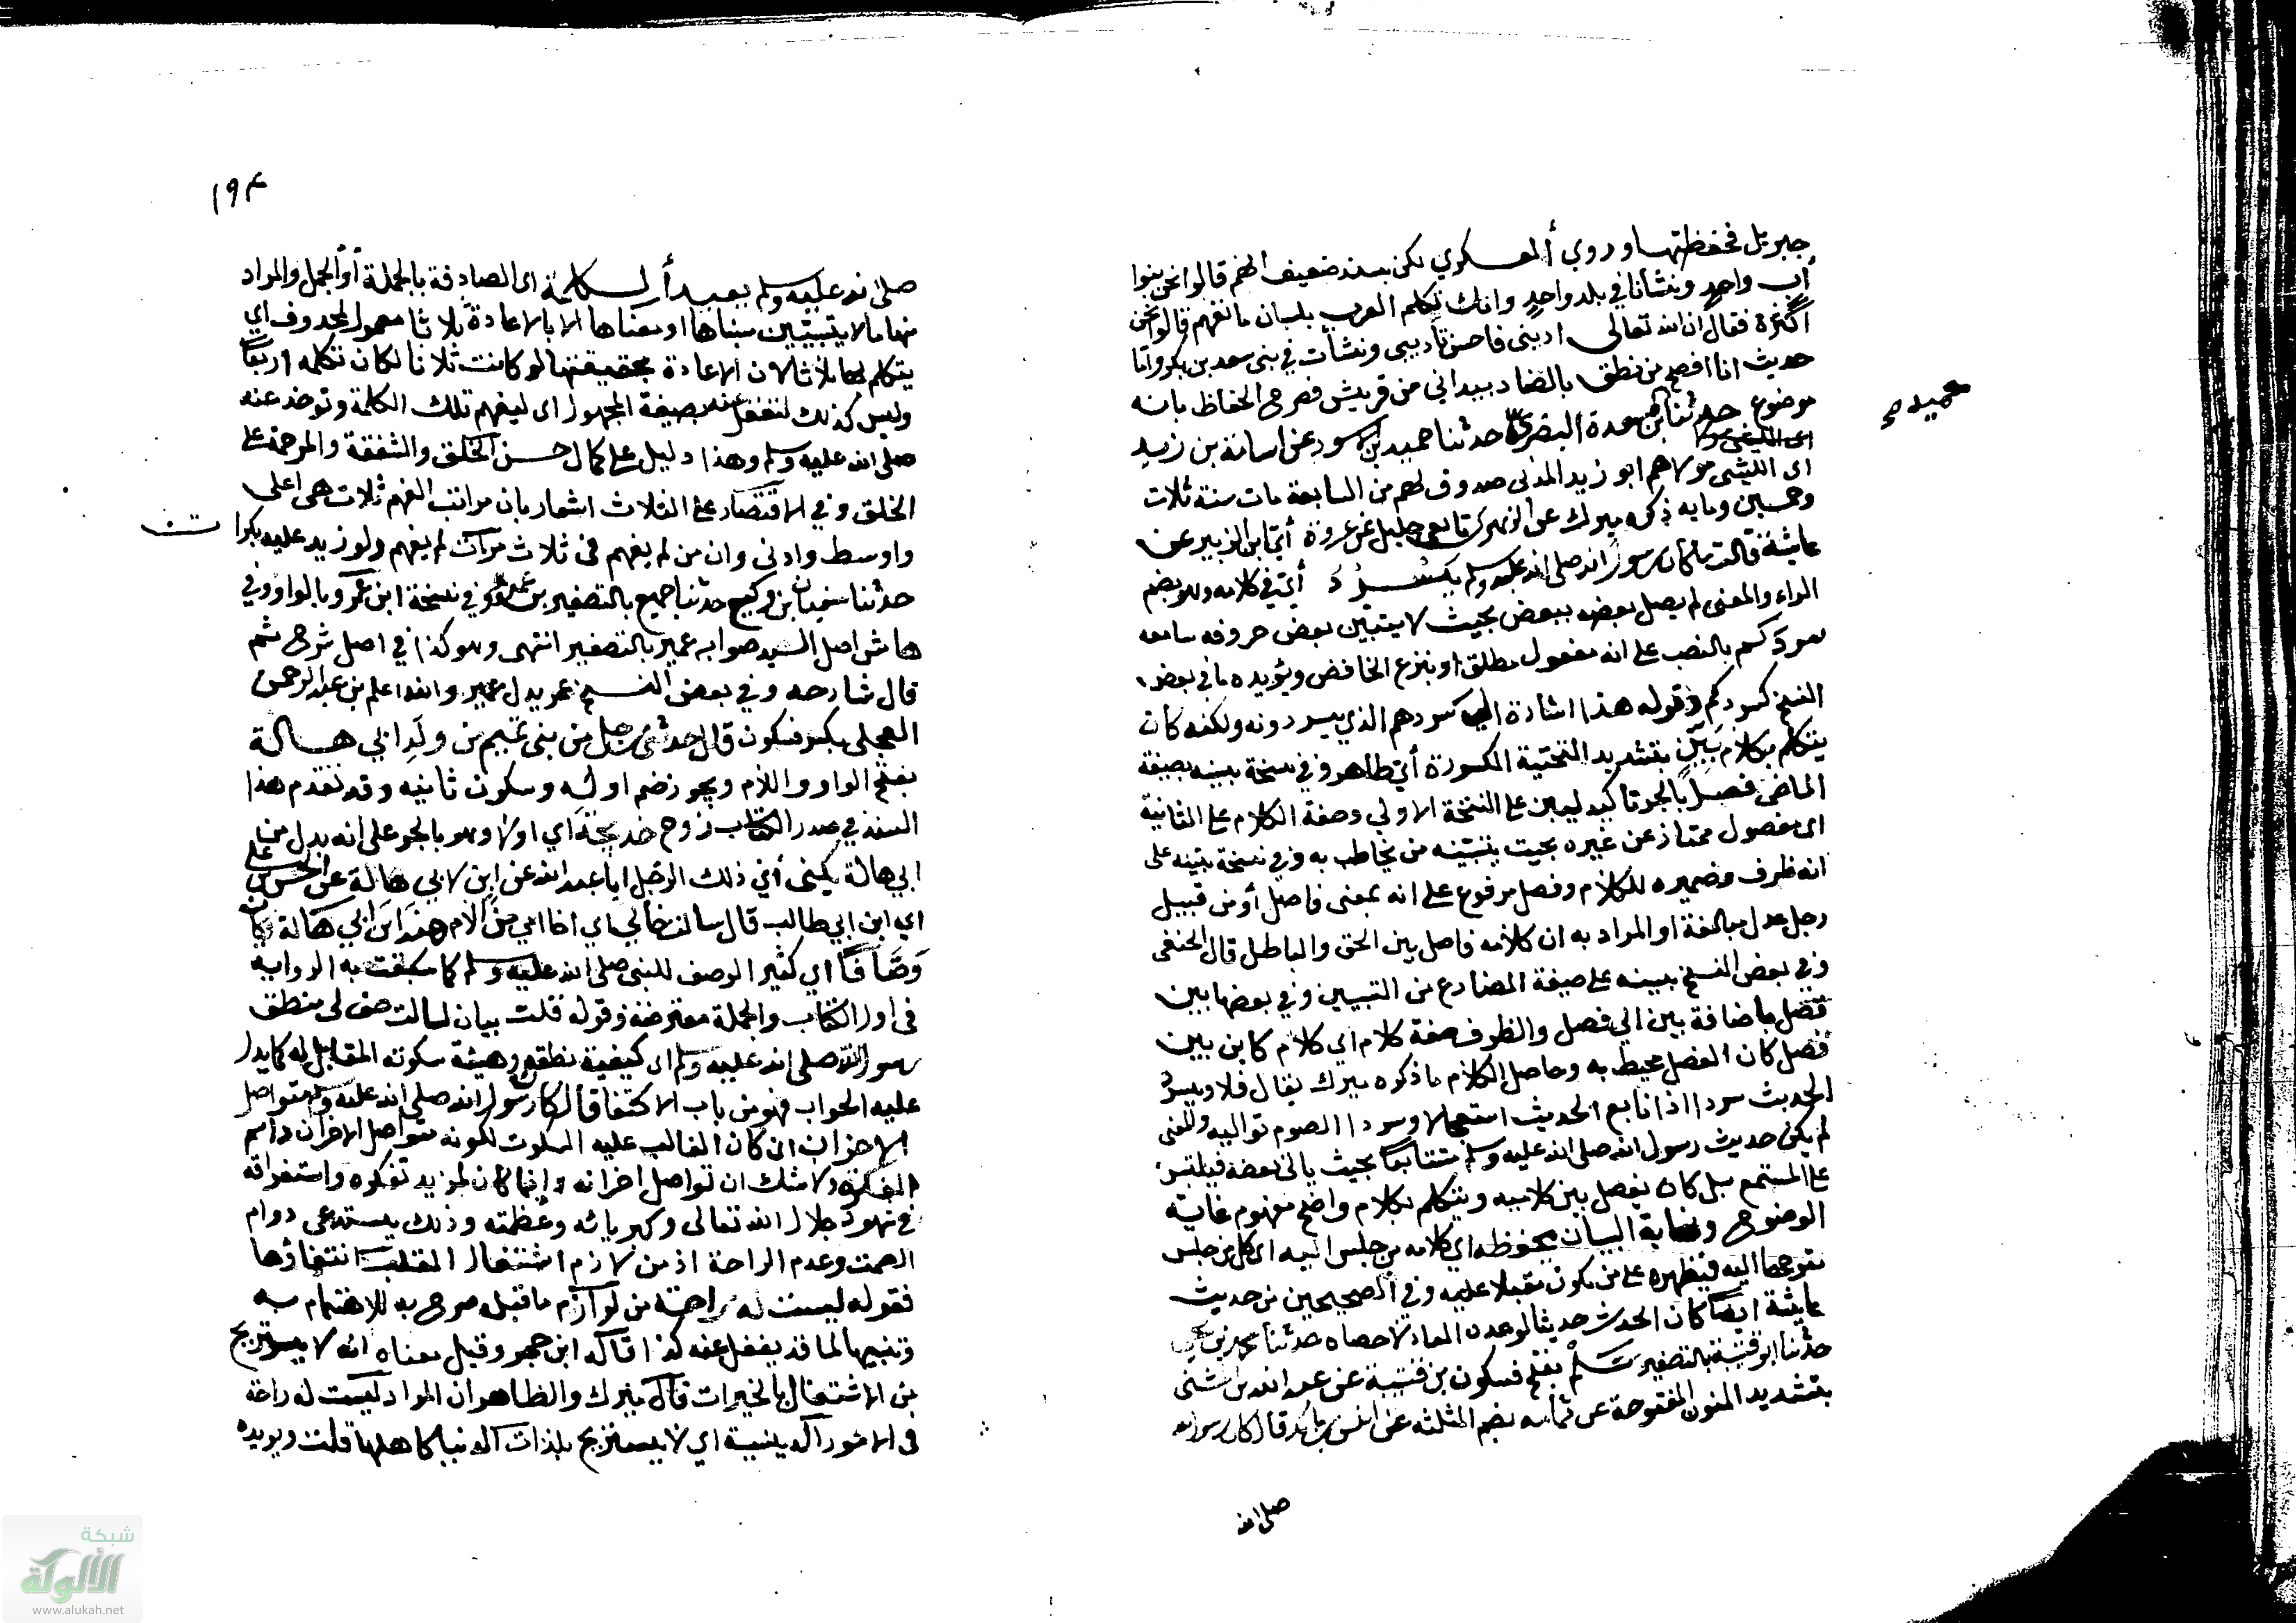 جبريل فحفظتها وروى العسكري لكن بسند ضعيف انهم قالوا نحن بنوا
أب واحد ونشأنا في بلد واحد وانك تكلم العرب بلسان ما نفهم قالوا نحن
أكثره فقال ان الله تعالى ادبنى فاحسن تأديبى ونشأت في بنى سعد بن بكر واما
حديث انا افصح من نطق بالضاد بيد انى من قريش فصرح الحفاظ بانه
موضوع حدثنا بن مسعدة البصرى حدثنا حميد بن الاسود عن اسامة بن زيد
حميد صح
اى الليثى مولاهم ابو زيد المدنى صدوق لهم من السابعة مات سنة ثلاث
وخمسين ومايه ذكره ميرك عن الزهرى تابعي جليل عن عروة أي ابن الزبير عن
عايشة قالت ما كان رسول الله صلى الله عليه وسلم يسرد أي في كلامه وهو بضم
الراء والمعنى لم يصل بعضه ببعض بحيث لا يتبين بعض حروفه سامعه
سردكم بالنصب على انه مفعول مطلق او بنزع الخافض ويؤيده ما في بعض
النسخ كسردكم وقوله هذا اشارة الى سردهم الذي يسردونه ولكنه كان
يتكلم بكلام بيّن بتشديد التحتية المكسورة أي ظاهر وفي نسخة بينه بصيغة
الماضى فصل بالجر تاكيد لبين على النسخة الاولي وصفة الكلام على الثانية
اى مفصول ممتاز عن غيره بحيث يتبينه من يخاطب به وفي نسخة بينه على
انه ظرف وضميره للكلام وفصل مرفوع على انه بمعنى فاصل أو من قبيل
رجل عدل مبالغة او المراد به ان كلامه فاصل بين الحق والباطل قال الحنفى
وفي بعض النسخ يبينه على صيغة المضارع من التبيين وفي بعضها بين
فصل باضافة بين الي فصل والظرف صفة كلام اي كلام كاين بين
فصل كان الفصل محيط به وحاصل الكلام ما ذكره ميرك يقال فلان يسرد
الحديث سردا اذا تابع الحديث استعجالا وسردا الصوم تواليه والمعنى
لم يكن حديث رسول الله صلى الله عليه وسلم متتابعا بحيث ياتى بعضه فيلتبس
على المستمع بل كان يفصل بين كلاميه ويتكلم بكلام واضح مفهوم غاية
الوضوح ونهاية البيان يحفظه اي كلامه من جلس اليه اى كل من جلس
متوجها اليه فيظهره على من يكون مقبلا عليه وفي الصحيحين من حديث
عايشة ايضا كان يحدث حديثا لو عده العاد لاحصاه حدثنا محمد بن يحيى
حدثنا ابو قتيبة بالتصغير سلم بفتح فسكون بن قتيبة عن عبد الله بن المثنى
بتشديد النون المفتوحة عن ثمامه بضم المثلثه عن انس بن مالك قال كان رسول الله
صلى الله
١٩٤
صلى الله عليه وسلم يعيد الكلمة اى الصادقة بالجملة أو الجمل والمراد
منها ما لا يتبين مبناها او معناها الا بالاعادة ثلاثا معمول لمحذوف اي
يتكلم بها ثلاثا لان الاعادة بحقيقتها لو كانت ثلاثا لكان تكلمه اربعا
وليس كذلك لتعقل عنه بصيغة المجهول اى ليفهم تلك الكلمة وتوخذ عنه
صلى الله عليه وسلم وهذا دليل على كمال حسن الخلق والشفقة والمرحمة على
الخلق وفي الاقتصار على الثلاث اشعار بان مراتب الفهم ثلاث هى اعلى
واوسط وادنى وان من لم يفهم في ثلاث مرات لم يفهم ولو زيد عليه بكرات
حدثنا سفيان بن وكيع حدثنا جميع بالتصغير بن عمر وفي نسخة ابن عمرو بالواو وفي
هامش اصل السيد صوابه عمير بالتصغير انتهى وهو كذا في اصل شرح ثم
قال شارحه وفي بعض النسخ عمر بدل عمير والله اعلم بن عبد الرحمن
العجلى بكسر فسكون قال حدثنى رجل من بنى تميم من ولد ابي هالة
بفتح الواو واللام ويجوز ضم اوله وسكون ثانيه وقد تقدم هذا
السند في صدر الكتاب زوج خديجة اي اولا وهو بالجر على انه بدل من
ابي هالة يكنى أي ذلك الرجل ابا عبد الله عن ابن لابي هالة عن الحسن بن على
اي ابن ابي طالب قال سالت خالي اي اخا امي من الام هند ابن ابي هالة وكان
وصّافا اي كثير الوصف للنبى صلى الله عليه وسلم كما سبقت به الرواية
فى اول الكتاب والجملة معترضة وقوله فقلت بيان لسالت صف لى منطق
رسول الله صلى الله عليه وسلم اى كيفية نطقه وهيئة سكوته المقابل له كما يدل
عليه الجواب فهو من باب الاكتفا قال كان رسول الله صلى الله عليه وسلم متواصل
الاحزان اى كان الغالب عليه السكوت لكونه متواصل الاحزان دايم
الفكرة ولا شك ان تواصل احزانه انما كان لمزيد تفكره واستغراقه
في شهود جلال الله تعالى وكبريائه وعظمته وذلك يستدعى دوام
الصمت وعدم الراحة اذ من لازم اشتغال القلب انتفاؤها
فقوله ليست له راحة من لوازم ما قبله صرح به للاهتمام به
وتنبيها لما قد يغفل عنه كذا قاله ابن حجر وقيل معناه انه لا يستريح
من الاشتغال بالخيرات قال ميرك والظاهر ان المراد ليست له راحة
فى الامور الدينية اي لا يستريح بلذات الدنيا كاهلها قلت ويويده
شبكة
الألوكة
www.alukah.net